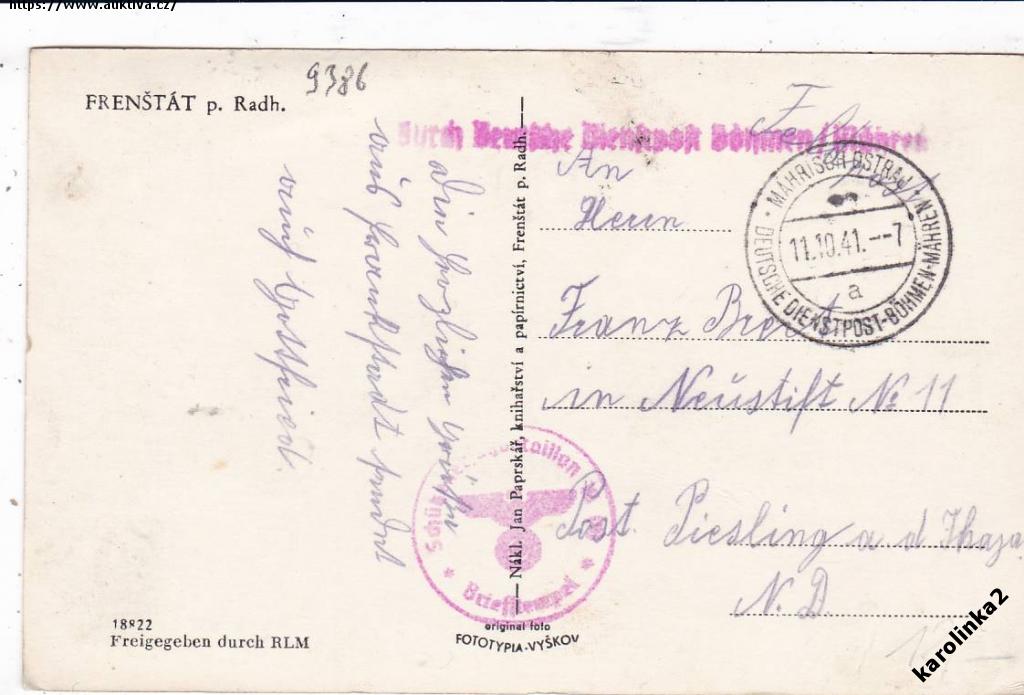 https://www.auktiva.cz/
FRENŠTÁT p. Radh.
9386
Durch Deutsche Dienstpost Böhmen/Mähren
Feldpost
MÄHRISCH OSTRAU 1
11.10.41.--7
a
DEUTSCHE DIENSTPOST-BÖHMEN-MÄHREN
An
Herrn
Franz
in Neustift No 11
Post Piesling a d Thaya
N. D.
Die herzlichsten Grüße
aus Frankstadt sendet
euch Gottfried.
Nákl. Jan Paprskář, knihařství a papírnictví, Frenštát p. Radh.
Briefstempel
original foto
FOTOTYPIA-VYŠKOV
18822
Freigegeben durch RLM
karolinka2